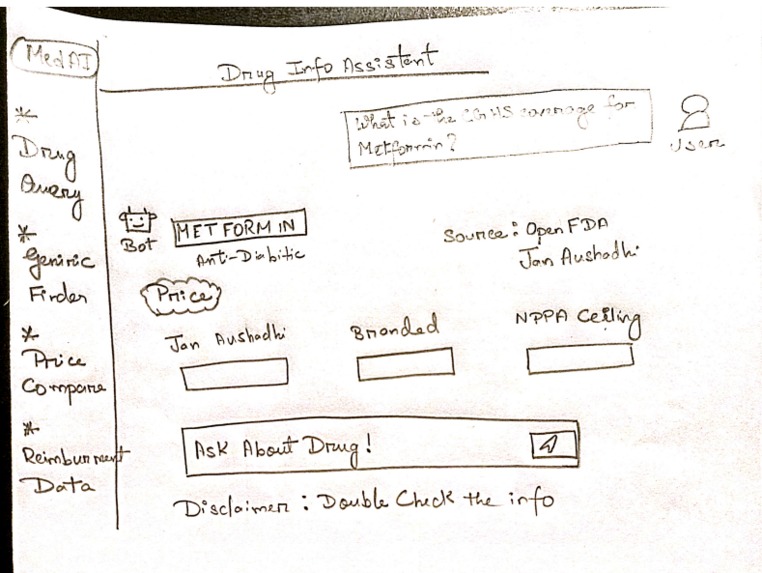 MedAI
Drug Info Assistant
What is the CGHS coverage for
Metformin?
User
*
Drug
Query
*
Generic
Finder
*
Price
Compare
*
Reimbursment
Data
Bot
METFORMIN
Anti-Diabitic
Source: Open FDA
Jan Aushadhi
Price
Jan Aushadhi
Branded
NPPA Ceiling
Ask About Drug!
Disclaimer: Double Check the info